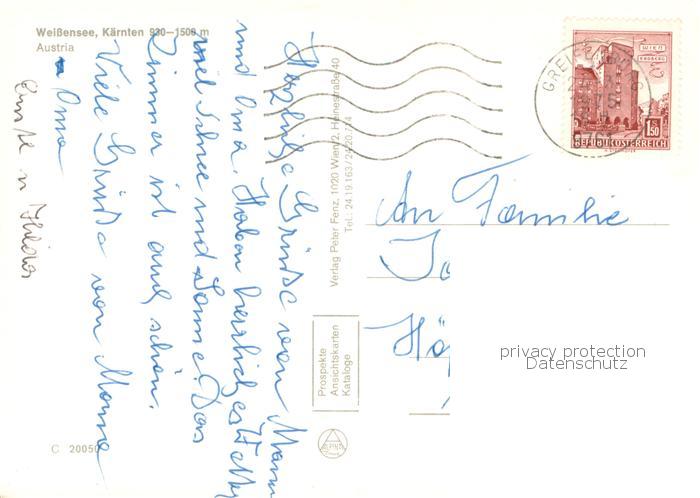 Weißensee, Kärnten 930–1500 m
Austria
Herzliche Grüße von Mama
und Oma. Haben herrliches Wetter
viel Schnee und Sonne. Das
Zimmer ist auch schön.
Viele Grüße von Mama
u Oma
Verlag Peter Fenz, 1020 Wien 2, Heinestraße 40
Tel.: 24.19.163/
Prospekte
Ansichtskarten
Kataloge
C 20050
GREI
WIEN
ERDBERG
1.50
REPUBLIK ÖSTERREICH
An Familie
privacy protection
Datenschutz